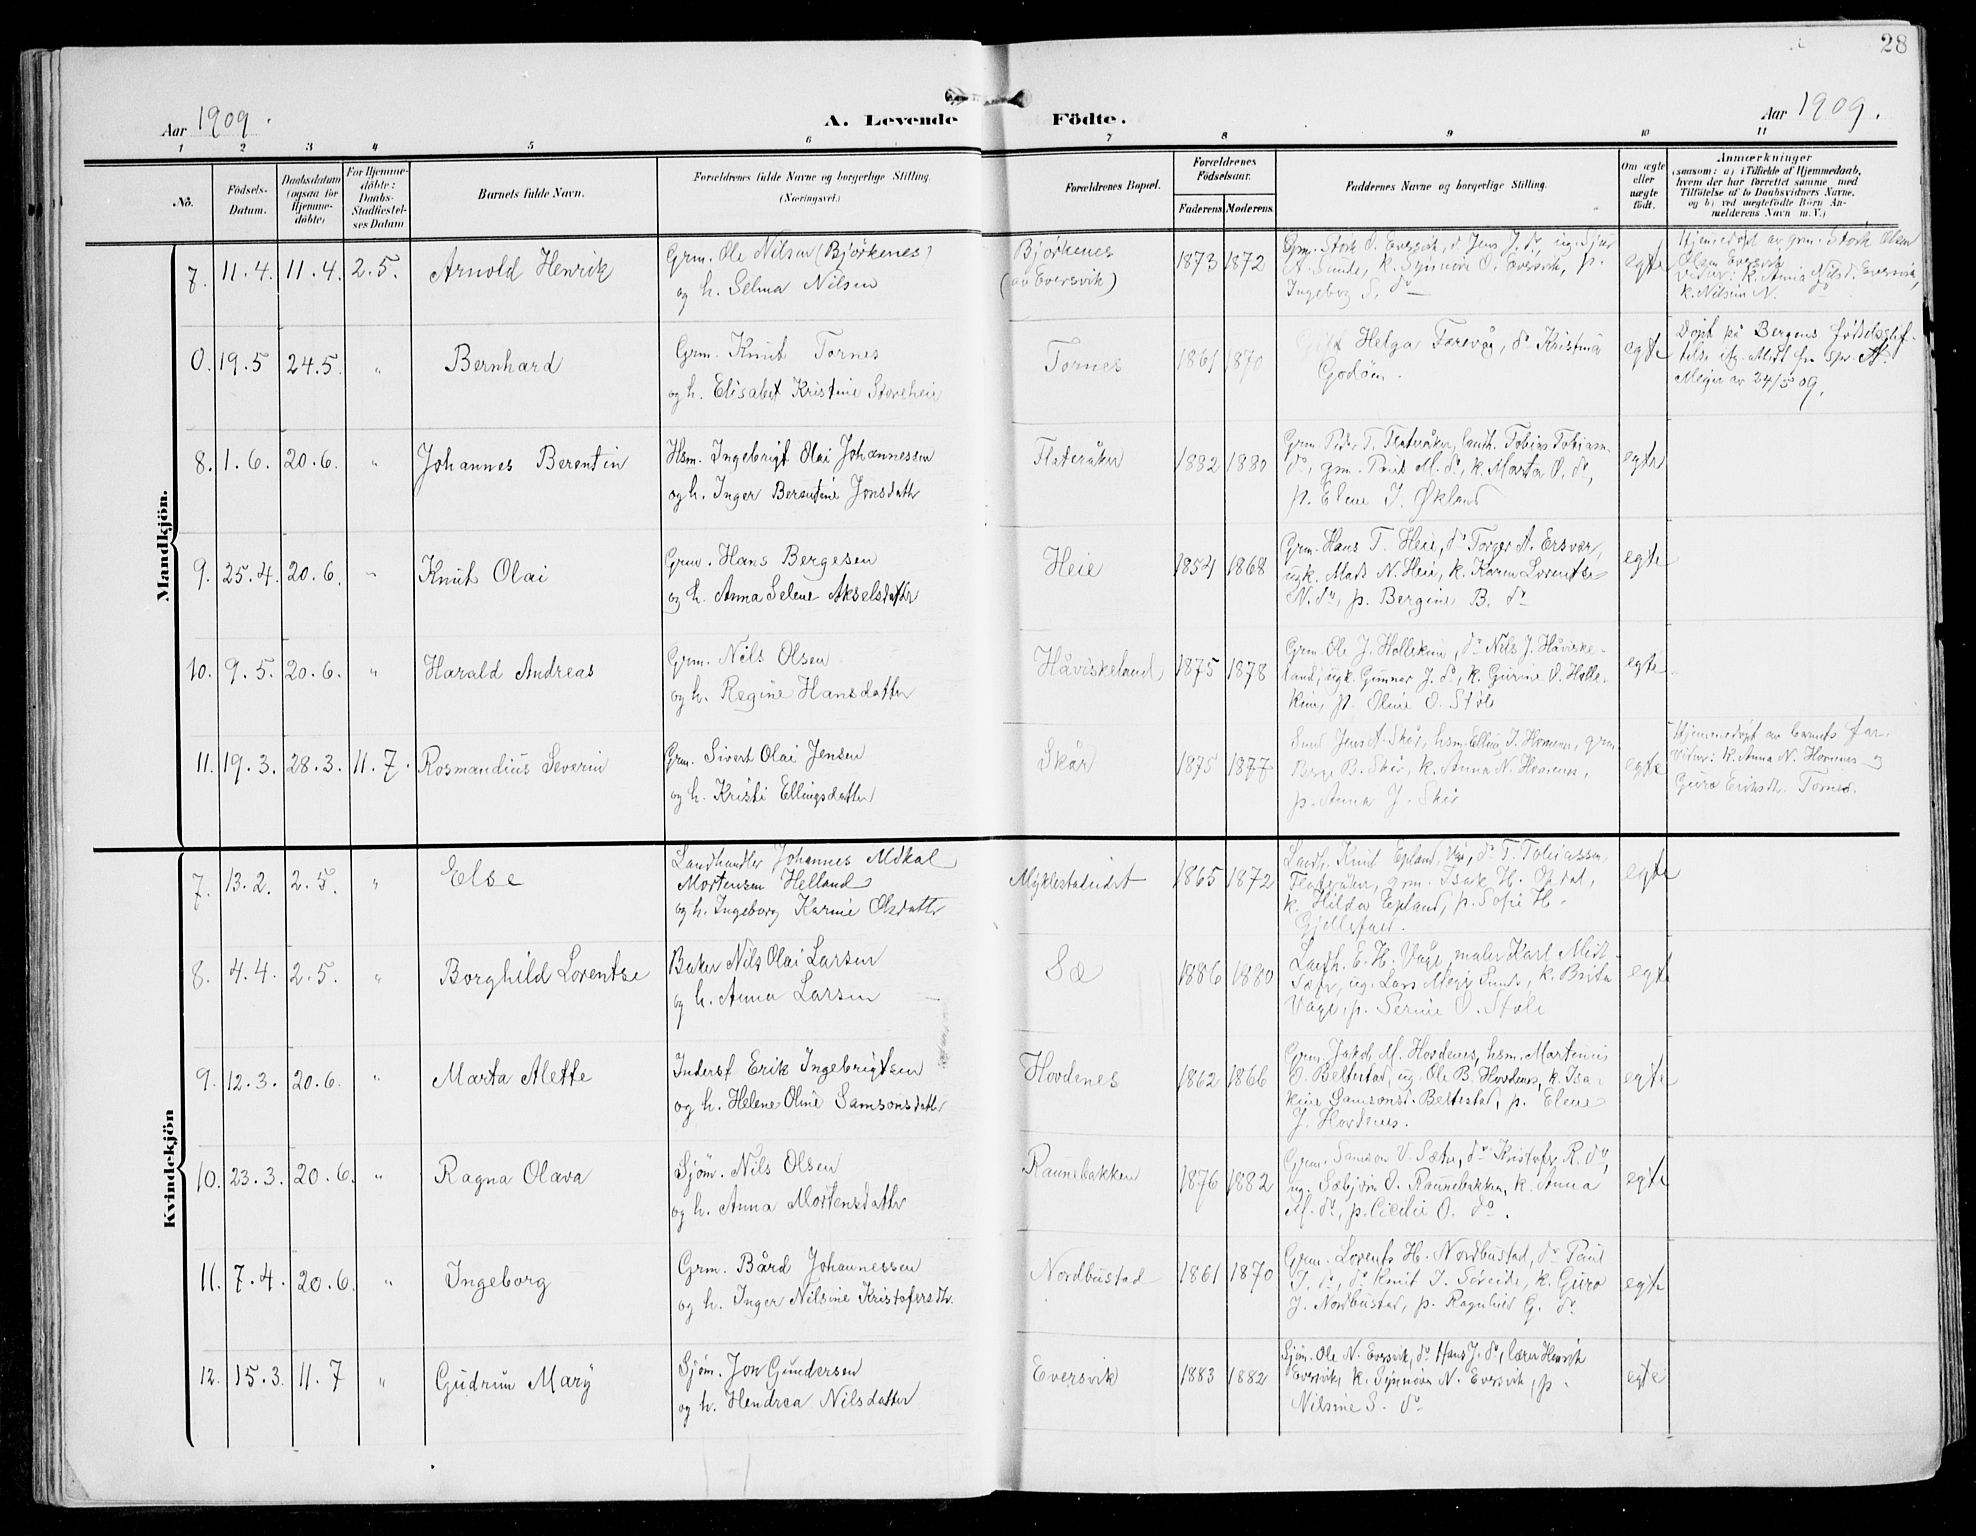 28
Aar 1909.
A. Levende Födte.
Aar 1909.
1 2 3 4 5 6 7 8 9 10 11
No.
Födsels-Datum.
Daabsdatum (ogsaa for Hjemme-döbte)
For Hjemme-döbte: Daabs-Stadfæstel-ses Datum
Barnets fulde Navn.
Forældrenes fulde Navne og borgerlige Stilling. (Næringsvei.)
Forældrenes Bopæl.
Forældrenes Födselsaar.
Faderens. Moderens.
Faddernes Navne og borgerlige Stilling.
Om ægte eller uægte födt.
Anmærkninger
(saasom: a) i Tilfælde af Hjemmedaab,
hvem der har forrettet samme med
Tilföielse af to Daabsvidners Navne,
og b) ved uægtefödte Börn An-
melderens Navn m. V.)
Mandkjön.
7. 11.4. 11.4. 2.5. Arnold Henrik
Grm. Ole Nilsen (Bjørkenes)
og h. Selma Nilsen
Bjørkenes
(av Eversvik)
1873 1872
Grm. Stork O. Eversvik, do Jens J. do, ug. Sjur
A. Sunde, k. Synnøve O. Eversvik, p.
Ingeborg S. do
egte
Hjemmedøpt av grm. Stork Olsen
Eversvik
k. Anna Nilsd. Eversvik,
k. Nilsine N. do
0. 19.5 24.5. " Bernhard
Grm. Knut Tornes
og h. Elisabet Kristine Storeheie
Tornes
1861 1870
Helga Færevåg, do Kristina
Godøen.
egte
Døpt på Bergens fødselsstif-
telse
Meyer av 24/5 09.
8. 1.6. 20.6. " Johannes Berentin
Hsm. Ingebrigt Olai Johannessen
og h. Inger Berentine Jonsdatter
Flateråker
1882 1880
Grm. Peder T. Flateråker, landh. Tobias Tobiass.
do, grm. Paul M. do, k. Marta O. do,
p. Elene J. Økland
egte
9. 25.4. 20.6. " Knut Olai
Grm. Hans Bergesen
og h. Anna Selene Akselsdatter
Heie
1854 1868
Grm. Hans T. Heie, do Torger A. Ersvær,
ugk. Mads N. Heie, k. Karen Lorentse
N. do, p. Bergine B. do
egte
10. 9.5. 20.6. " Harald Andreas
Grm. Nils Olsen
og h. Regine Hansdatter
Håviskeland
1875 1878
Grm. Ole J. Hollekim, do Nils J. Håviske-
land, ugk. Gunnar J. do, k. Gurine O. Holle-
kim, p. Oline O. Støle
egte
11. 19.3. 28.3. 11.7. Rosmandius Severin
Grm. Sivert Olai Jensen
og h. Kristi Ellingsdatter
Skår
1875 1877
Jens A. Skår, hsm. Elling J. Hovnenes, grm.
Berge B. Skår, k. Anna N. Hovnenes,
p. Anna J. Skår
egte
Hjemmedøpt av barnets far.
Vidner: k. Anna N. Hovnenes og
Guro Eriksdtr. Tornes.
Kvindekjön
7. 13.2. 2.5. " Else
Landhandler Johannes Mikal
Mortensen Helland
og h. Ingeborg Karine Olsdatter
Myklestadeidet
1865 1872
Landh. Knut Epland, Våge, do T. Tobiassen
Flateråker, grm. Isak H. Opdal,
k. Hilda Epland, p. Sofie H.
Gjellefald.
egte
8. 4.4. 2.5. " Borghild Lorentse
Baker Nils Olai Larsen
og h. Anna Larsen
Sæ
1886 1880
Landh. E. H. Våge, maler Karl Midt-
sæter, ug. Lars Meyer Sunde, k. Brita
Våge, p. Serine O. Støle
egte
9. 12.3. 20.6. " Marta Alette
Inderst Erik Ingebrigtsen
og h. Helene Oline Samsonsdatter
Hovdenes
1862 1866
Grm. Jakob M. Hovdenes, hsm. Martinus
O. Beltestad, ug. Ole B. Hovdenes, k. Isa-
kine Samsonsd. Beltestad, p. Elene
J. Hovdenes.
egte
10. 23.3. 20.6. " Ragna Olava
Sjøm. Nils Olsen
og h. Anna Mortensdatter
Raunebakken
1876 1882
Grm. Samson V. Sætre, do Kristofer R. do,
ug. Sæbjørn O. Raunebakken, k. Anna
M. do, p. Cicilie O. do.
egte
11. 7.4. 20.6. " Ingeborg
Grm. Bård Johannessen
og h. Inger Nilsine Kristofersdtr.
Nordbustad
1861 1870
Grm. Lorents H. Nordbustad, do Paul
J. do, do Knut J. Søreide, k. Guro
J. Nordbustad, p. Ragnhild G. do
egte
12. 15.3. 11.7 " Gudrun Mary
Sjøm. Jon Gundersen
og h. Hendrea Nilsdatter
Eversvik
1883 1882
Sjøm. Ole N. Eversvik, do Hans J. do, lærer Henrik
Eversvik, k. Synnøva N. Eversvik, p.
Nilsine S. do
egte